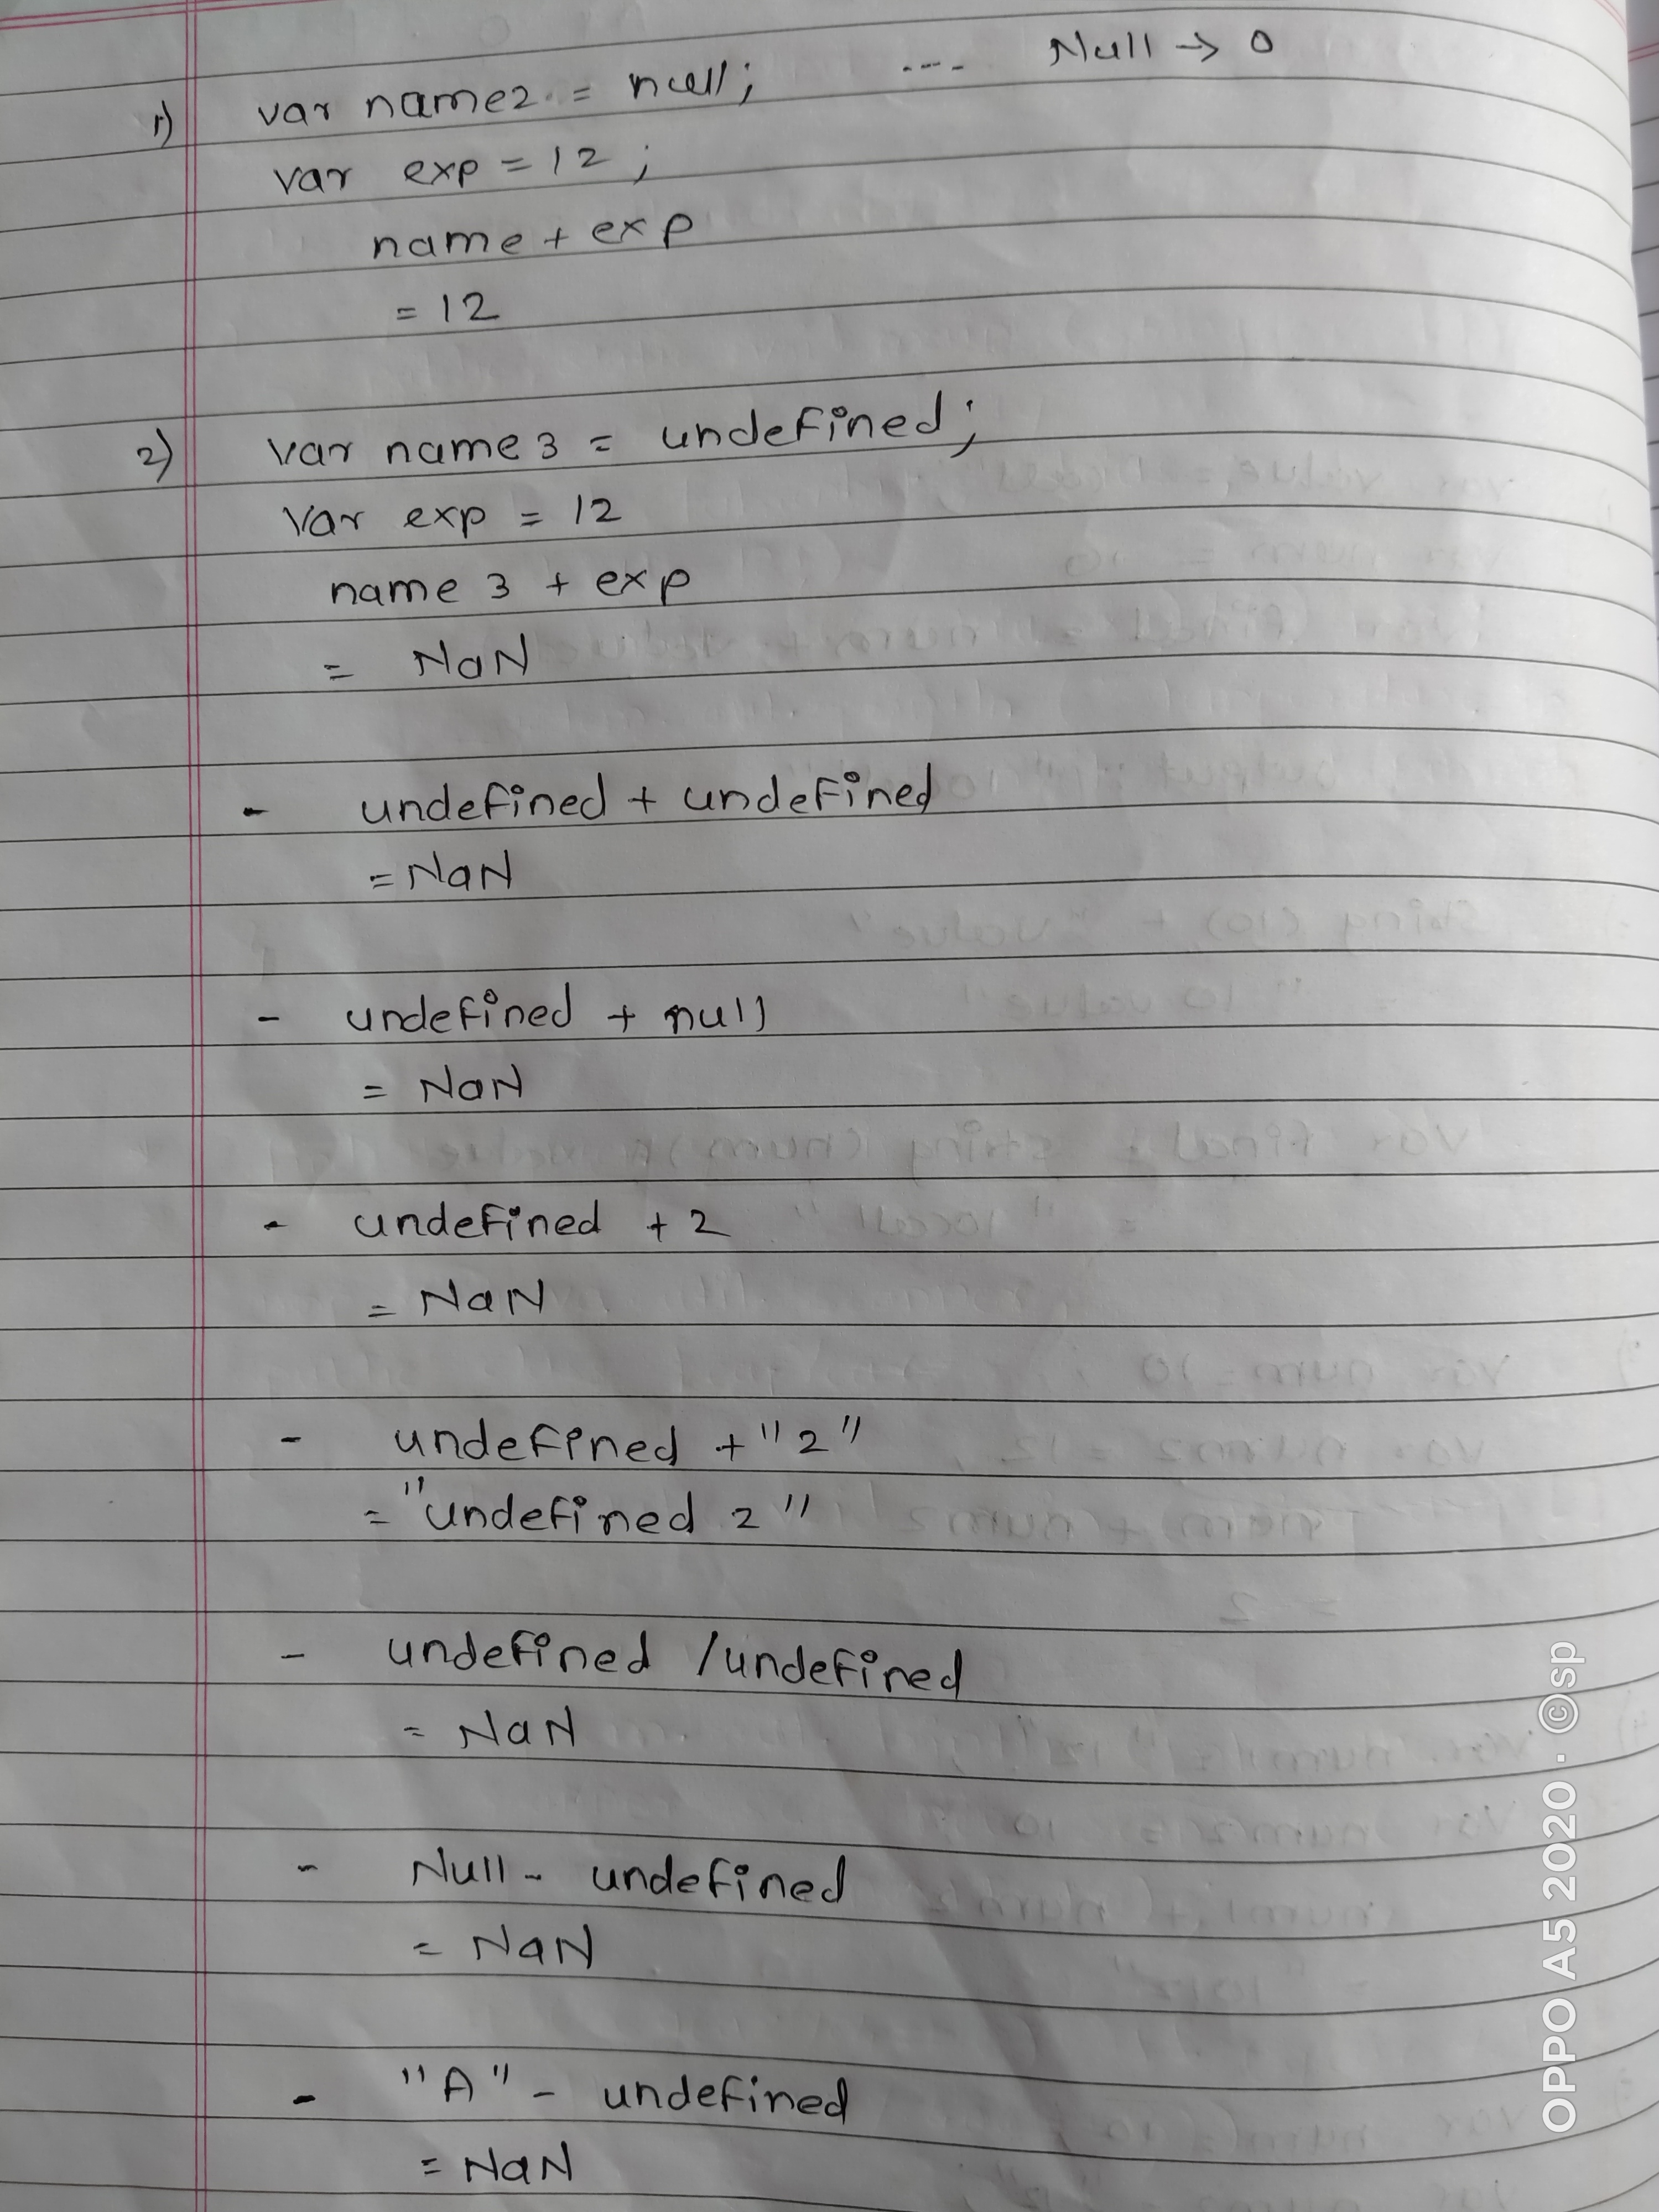 1) var name2 = null; .... Null → 0
var exp = 12 ;
name + exp
= 12
2) var name3 = undefined;
var exp = 12
name 3 + exp
= NaN
- undefined + undefined
= NaN
- undefined + null
= NaN
- undefined + 2
= NaN
- undefined + "2"
= "undefined 2"
- undefined / undefined
= NaN
- Null - undefined
= NaN
- "A" - undefined
= NaN
OPPO A5 2020 · ©sp